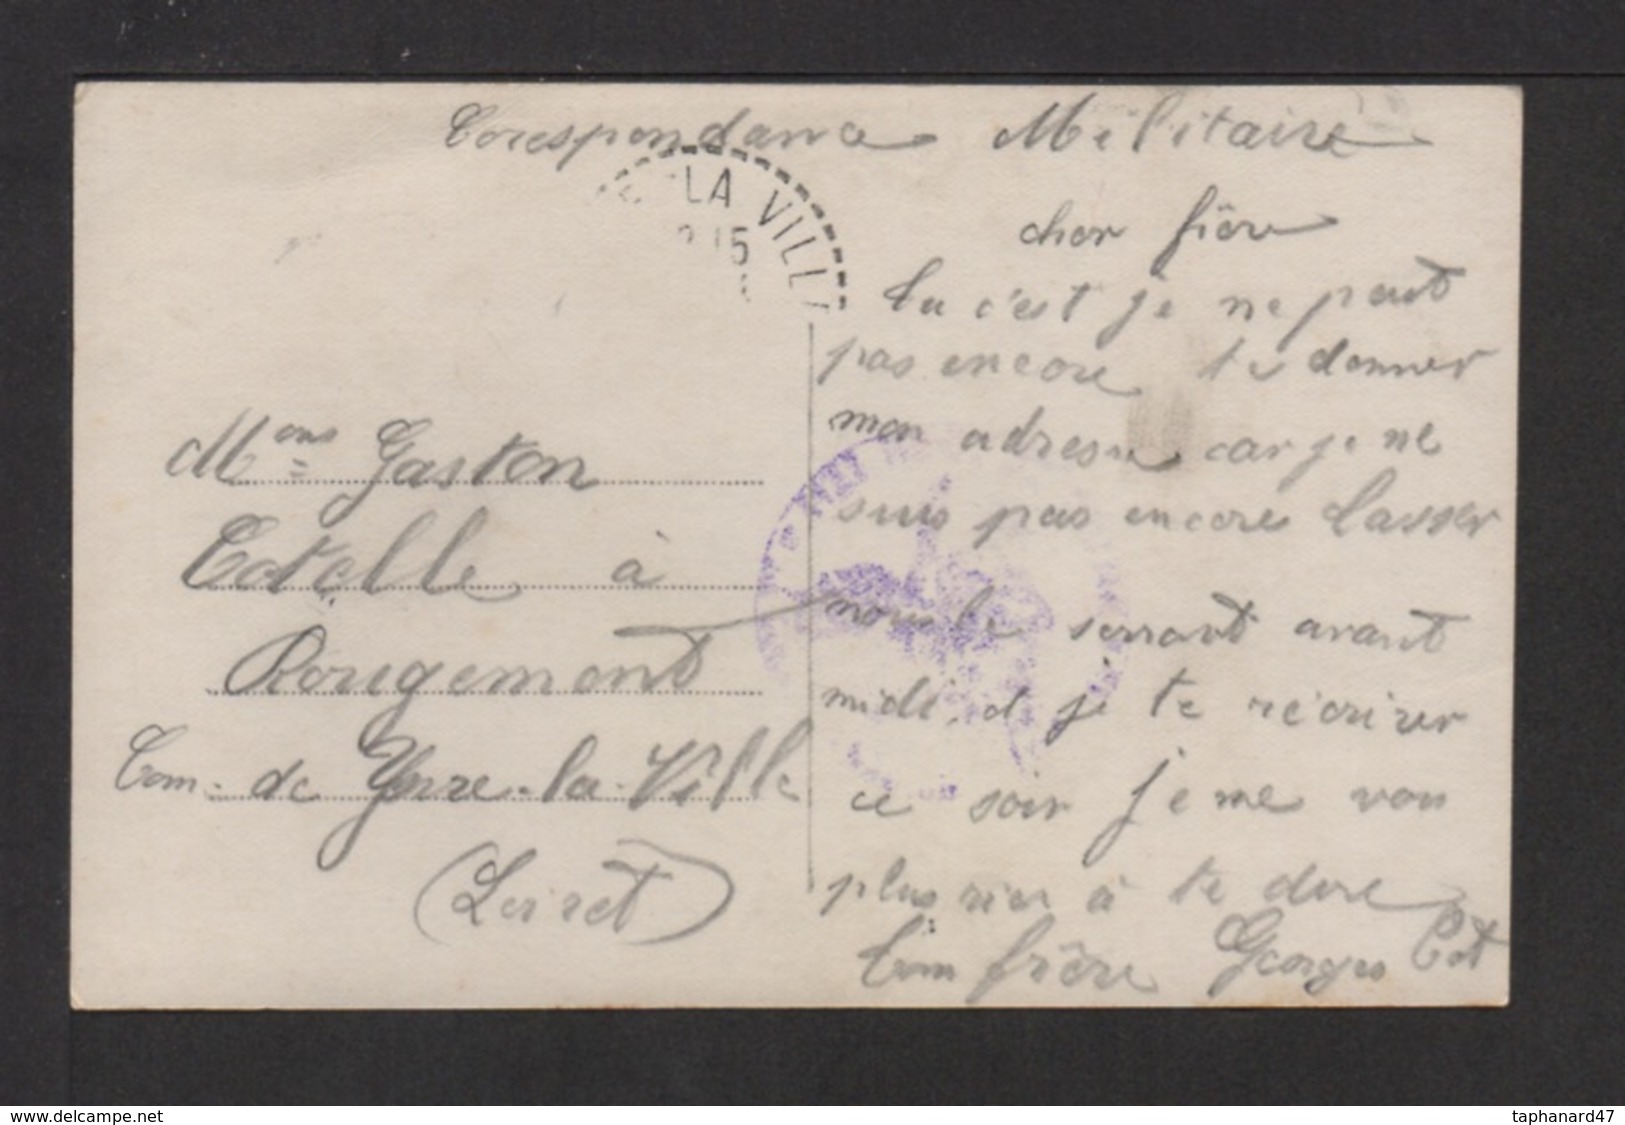 Corespondance Militaire
LA VILL
15
cher frère
tu c'est je ne peut
pas encore te donner
mon adresse car je ne
suis pas encore classer
nous le seront avant
midi. et je te réécrirer
ce soir je me voix
plus rien à te dire
ton frère Georges Cot
Mons Gaston
Cotelle à
Rougement
Com. de Yvre-la-Ville
(Loiret)
delcampe.net
taphanard47